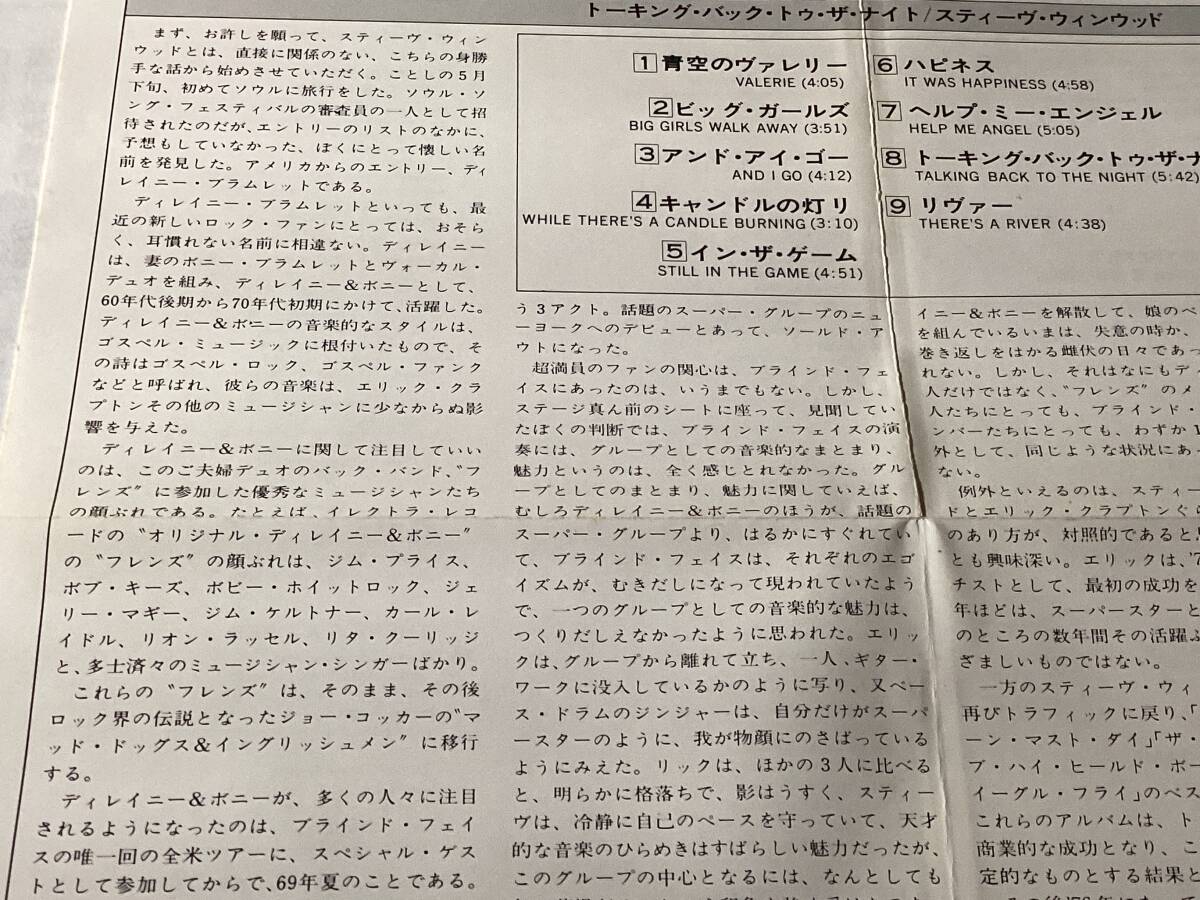 トーキング・バック・トゥ・ザ・ナイト/スティーヴ・ウィンウッド
1 青空のヴァレリー
VALERIE (4:05)
2 ビッグ・ガールズ
BIG GIRLS WALK AWAY (3:51)
3 アンド・アイ・ゴー
AND I GO (4:12)
4 キャンドルの灯り
WHILE THERE'S A CANDLE BURNING (3:10)
5 イン・ザ・ゲーム
STILL IN THE GAME (4:51)
6 ハピネス
IT WAS HAPPINESS (4:58)
7 ヘルプ・ミー・エンジェル
HELP ME ANGEL (5:05)
8 トーキング・バック・トゥ・ザ・ナ
TALKING BACK TO THE NIGHT (5:42)
9 リヴァー
THERE'S A RIVER (4:38)
まず、お許しを願って、スティーヴ・ウィン
ウッドとは、直接に関係のない、こちらの身勝
手な話から始めさせていただく。ことしの5月
下旬、初めてソウルに旅行をした。ソウル・ソ
ング・フェスティバルの審査員の一人として招
待されたのだが、エントリーのリストのなかに、
予想もしていなかった、ぼくにとって懐しい名
前を発見した。アメリカからのエントリー、ディ
レイニー・ブラムレットである。
ディレイニー・ブラムレットといっても、最
近の新しいロック・ファンにとっては、おそら
く、耳慣れない名前に相違ない。ディレイニー
は、妻のボニー・ブラムレットとヴォーカル・
デュオを組み、ディレイニー&ボニーとして、
60年代後期から70年代初期にかけて、活躍した。
ディレイニー&ボニーの音楽的なスタイルは、
ゴスペル・ミュージックに根付いたもので、そ
の詩はゴスペル・ロック、ゴスペル・ファンク
などと呼ばれ、彼らの音楽は、エリック・クラ
プトンその他のミュージシャンに少なからぬ影
響を与えた。
ディレイニー&ボニーに関して注目していい
のは、このご夫婦デュオのバック・バンド、〝フ
レンズ〟に参加した優秀なミュージシャンたち
の顔ぶれである。たとえば、イレクトラ・レコ
ードの〝オリジナル・ディレイニー&ボニー〟
の〝フレンズ〟の顔ぶれは、ジム・プライス、
ボブ・キーズ、ボビー・ホイットロック、ジェ
リー・マギー、ジム・ケルトナー、カール・レ
イドル、リオン・ラッセル、リタ・クーリッジ
と、多士済々のミュージシャン・シンガーばかり。
これらの〝フレンズ〟は、そのまま、その後
ロック界の伝説となったジョー・コッカーの〝マ
ッド・ドッグス&イングリッシュメン〟に移行
する。
ディレイニー&ボニーが、多くの人々に注目
されるようになったのは、ブラインド・フェイ
スの唯一回の全米ツアーに、スペシャル・ゲス
トとして参加してからで、69年夏のことである。
う3アクト。話題のスーパー・グループのニュ
ーヨークへのデビューとあって、ソールド・ア
ウトになった。
超満員のファンの関心は、ブラインド・フェ
イスにあったのは、いうまでもない。しかし、
ステージ真ん前のシートに座って、見聞してい
たぼくの判断では、ブラインド・フェイスの演
奏には、グループとしての音楽的なまとまり、
魅力というのは、全く感じとれなかった。グル
ープとしてのまとまり、魅力に関していえば、
むしろディレイニー&ボニーのほうが、話題の
スーパー・グループより、はるかにすぐれてい
て、ブラインド・フェイスは、それぞれのエゴ
イズムが、むきだしになって現われていたよう
で、一つのグループとしての音楽的な魅力は、
つくりだしえなかったように思われた。エリッ
クは、グループから離れて立ち、一人、ギター・
ワークに没入しているかのように写り、又ベー
ス・ドラムのジンジャーは、自分だけがスーパ
ースターのように、我が物顔にのさばっている
ようにみえた。リックは、ほかの3人に比べる
と、明らかに格落ちで、影はうすく、スティー
ヴは、冷静に自己のペースを守っていて、天才
的な音楽のひらめきはすばらしい魅力だったが、
このグループの中心となるには、なんとしても
イニー&ボニーを解散して、娘のベ
を組んでいるいまは、失意の時か、
巻き返しをはかる雌伏の日々であっ
れない。しかし、それはなにもディ
人だけではなく、〝フレンズ〟のメ
人たちにとっても、ブラインド・
ンバーたちにとっても、わずか1
外として、同じような状況にあっ
ない。
例外といえるのは、スティー
ドとエリック・クラプトンぐら
のあり方が、対照的であると
とも興味深い。エリックは、'7
チストとして、最初の成功を
年ほどは、スーパースターと
のところの数年間その活躍ぶ
ざましいものではない。
一方のスティーヴ・ウィ
再びトラフィックに戻り、「
ーン・マスト・ダイ」「ザ・
ブ・ハイ・ヒールド・ボー
イーグル・フライ」のベス
これらのアルバムは、ト
商業的な成功となり、こ
定的なものとする結果と